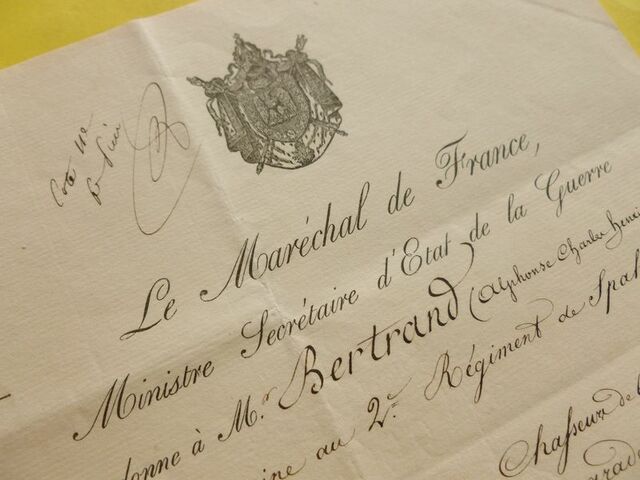 Cote 112
Le Maréchal de France,
Ministre Secrétaire d'Etat de la Guerre
donne à Mr. Bertrand (Alphonse Charles Henri
ine au 2e. Régiment de Spah
Chasseur de l
grade